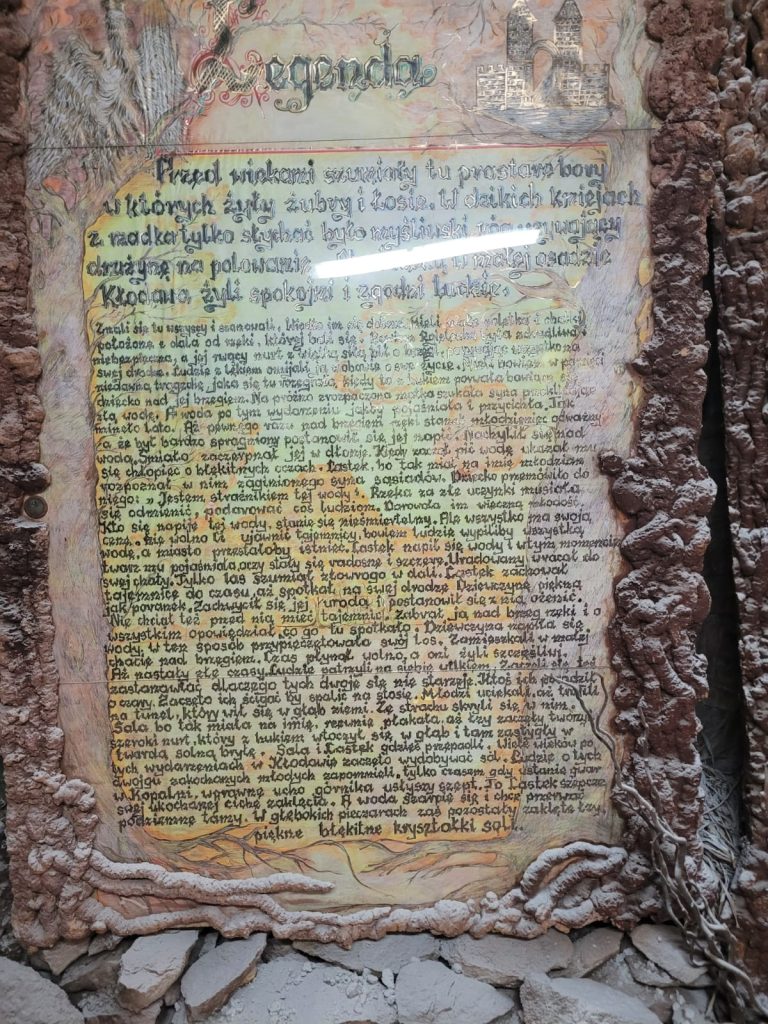 Legenda
Przed wiekami szumiały tu prastare bory
w których żyły żubry i łosie. W dzikich kniejach
z rzadka tylko słychać było myśliwski róg wzywający
drużynę na polowanie. w małej osadzie
Kłodawa żyli spokojni i zgodni ludzie.
Znali się tu wszyscy i szanowali. Wiodło im się dobrze. Mieli swoje poletka i chatki
położone z dala od rzeki, której bali się. Rzeka była zdradliwa i
niebezpieczna, a jej rwący nurt z wielką siłą bił o brzegi, porywając wszystko na
swej drodze. Ludzie z lękiem omijali ją w obawie o swe życie. Mieli bowiem w pamięci
niedawną tragedię, jaka się tu wydarzyła, kiedy to z hukiem porwała bawiące się
dziecko nad jej brzegiem. Na próżno zrozpaczona matka szukała syna przeklinając
złą wodę. A woda po tym wydarzeniu jakby pojaśniała i przycichła. Tak
minęło lato. Aż pewnego razu nad brzegiem rzeki stanął młodzieniec odważny
a że był bardzo spragniony postanowił się jej napić. Nachylił się nad
wodą. Śmiało zaczerpnął jej w dłonie. Kiedy zaczął pić wodę ukazał mu
się chłopiec o błękitnych oczach. Lastek, bo tak miał na imię młodzian
rozpoznał w nim zaginionego syna sąsiadów. Dziecko przemówiło do
niego: „Jestem strażnikiem tej wody”. Rzeka za złe uczynki musiała
się odmienić, podarować coś ludziom. Darowała im wieczną młodość.
Kto się napije tej wody, stanie się nieśmiertelny. Ale wszystko ma swoją
cenę. Nie wolno Ci ujawnić tajemnicy, bowiem ludzie wypiliby wszystką
wodę, a miasto przestałoby istnieć. Lastek napił się wody i w tym momencie
twarz mu pojaśniała, oczy stały się radosne i szczere. Uradowany wracał do
swej chaty. Tylko las szumiał złowrogo w dali. Lastek zachował
tajemnicę do czasu, aż spotkał na swej drodze Dziewczynę piękną
jak poranek. Zachwycił się jej urodą i postanowił się z nią ożenić.
Nie chciał też przed nią mieć tajemnic. Zabrał ją nad brzeg rzeki i o
wszystkim opowiedział, co go tu spotkało. Dziewczyna napiła się
wody, w ten sposób przypieczętowała swój los. Zamieszkali w małej
chacie nad brzegiem. Czas płynął wolno, a oni żyli szczęśliwi.
Aż nastały złe czasy. Ludzie patrzyli na siebie wilkiem. Zaczęli się też
zastanawiać dlaczego tych dwoje się nie starzeje. Ktoś ich posądził
o czary. Zaczęto ich ścigać by spalić na stosie. Młodzi uciekali, aż trafili
na tunel, który wił się w głąb ziemi. Ze strachu skryli się w nim.
Sala bo tak miała na imię, rzewnie płakała, aż łzy zaczęły tworzyć
szeroki nurt, który z hukiem wtoczył się w głąb i tam zastygły w
twardą solną bryłę. Sala i Lastek gdzieś przepadli. Wiele wieków po
tych wydarzeniach w Kłodawie zaczęto wydobywać sól. Ludzie o tych
dwojgu zakochanych młodych zapomnieli, tylko czasem gdy ustanie gwar
w Kopalni, wprawne ucho górnika usłyszy szept. To Lastek szepcze
swej ukochanej ciche zaklęcia. A woda szarpie się i chce przerwać
podziemne tamy. W głębokich pieczarach zaś pozostały zaklęte łzy,
piękne błękitne kryształki soli.